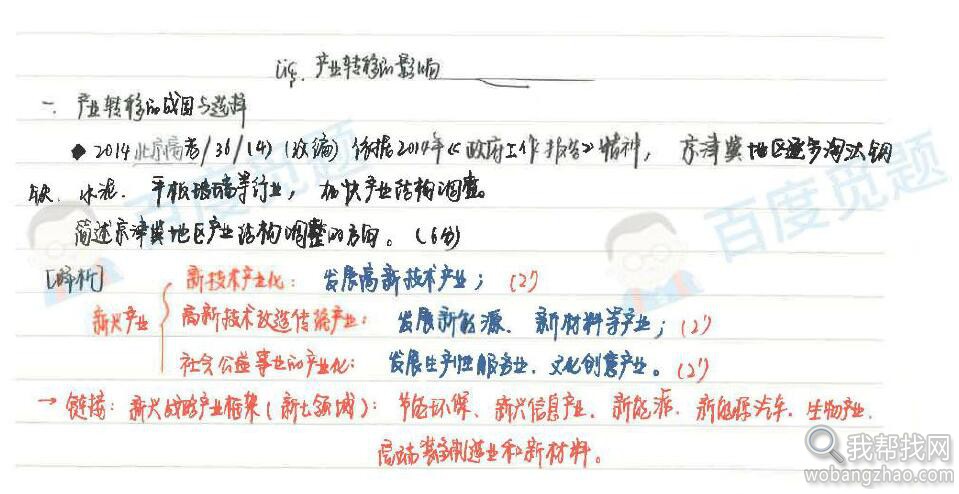 产业转移的影响
一、产业转移的成因与选择
◆ 2014北京高考/36/(4) (改编) 依据2014年《政府工作报告》精神，京津冀地区逐步淘汰钢
铁、水泥、平板玻璃等行业，加快产业结构调整。
简述京津冀地区产业结构调整的方向。(6分)
[解析]
新兴产业
新技术产业化：发展高新技术产业；(2')
高新技术改造传统产业：发展新能源、新材料等产业；(2')
社会公益事业的产业化：发展生产性服务业、文化创意产业。(2')
→ 链接：新兴战略产业框架(新七领域)：节能环保、新兴信息产业、新能源、新能源汽车、生物产业、
高端装备制造业和新材料。
百度觅题
百度觅题
我帮找网
wobangzhao.com